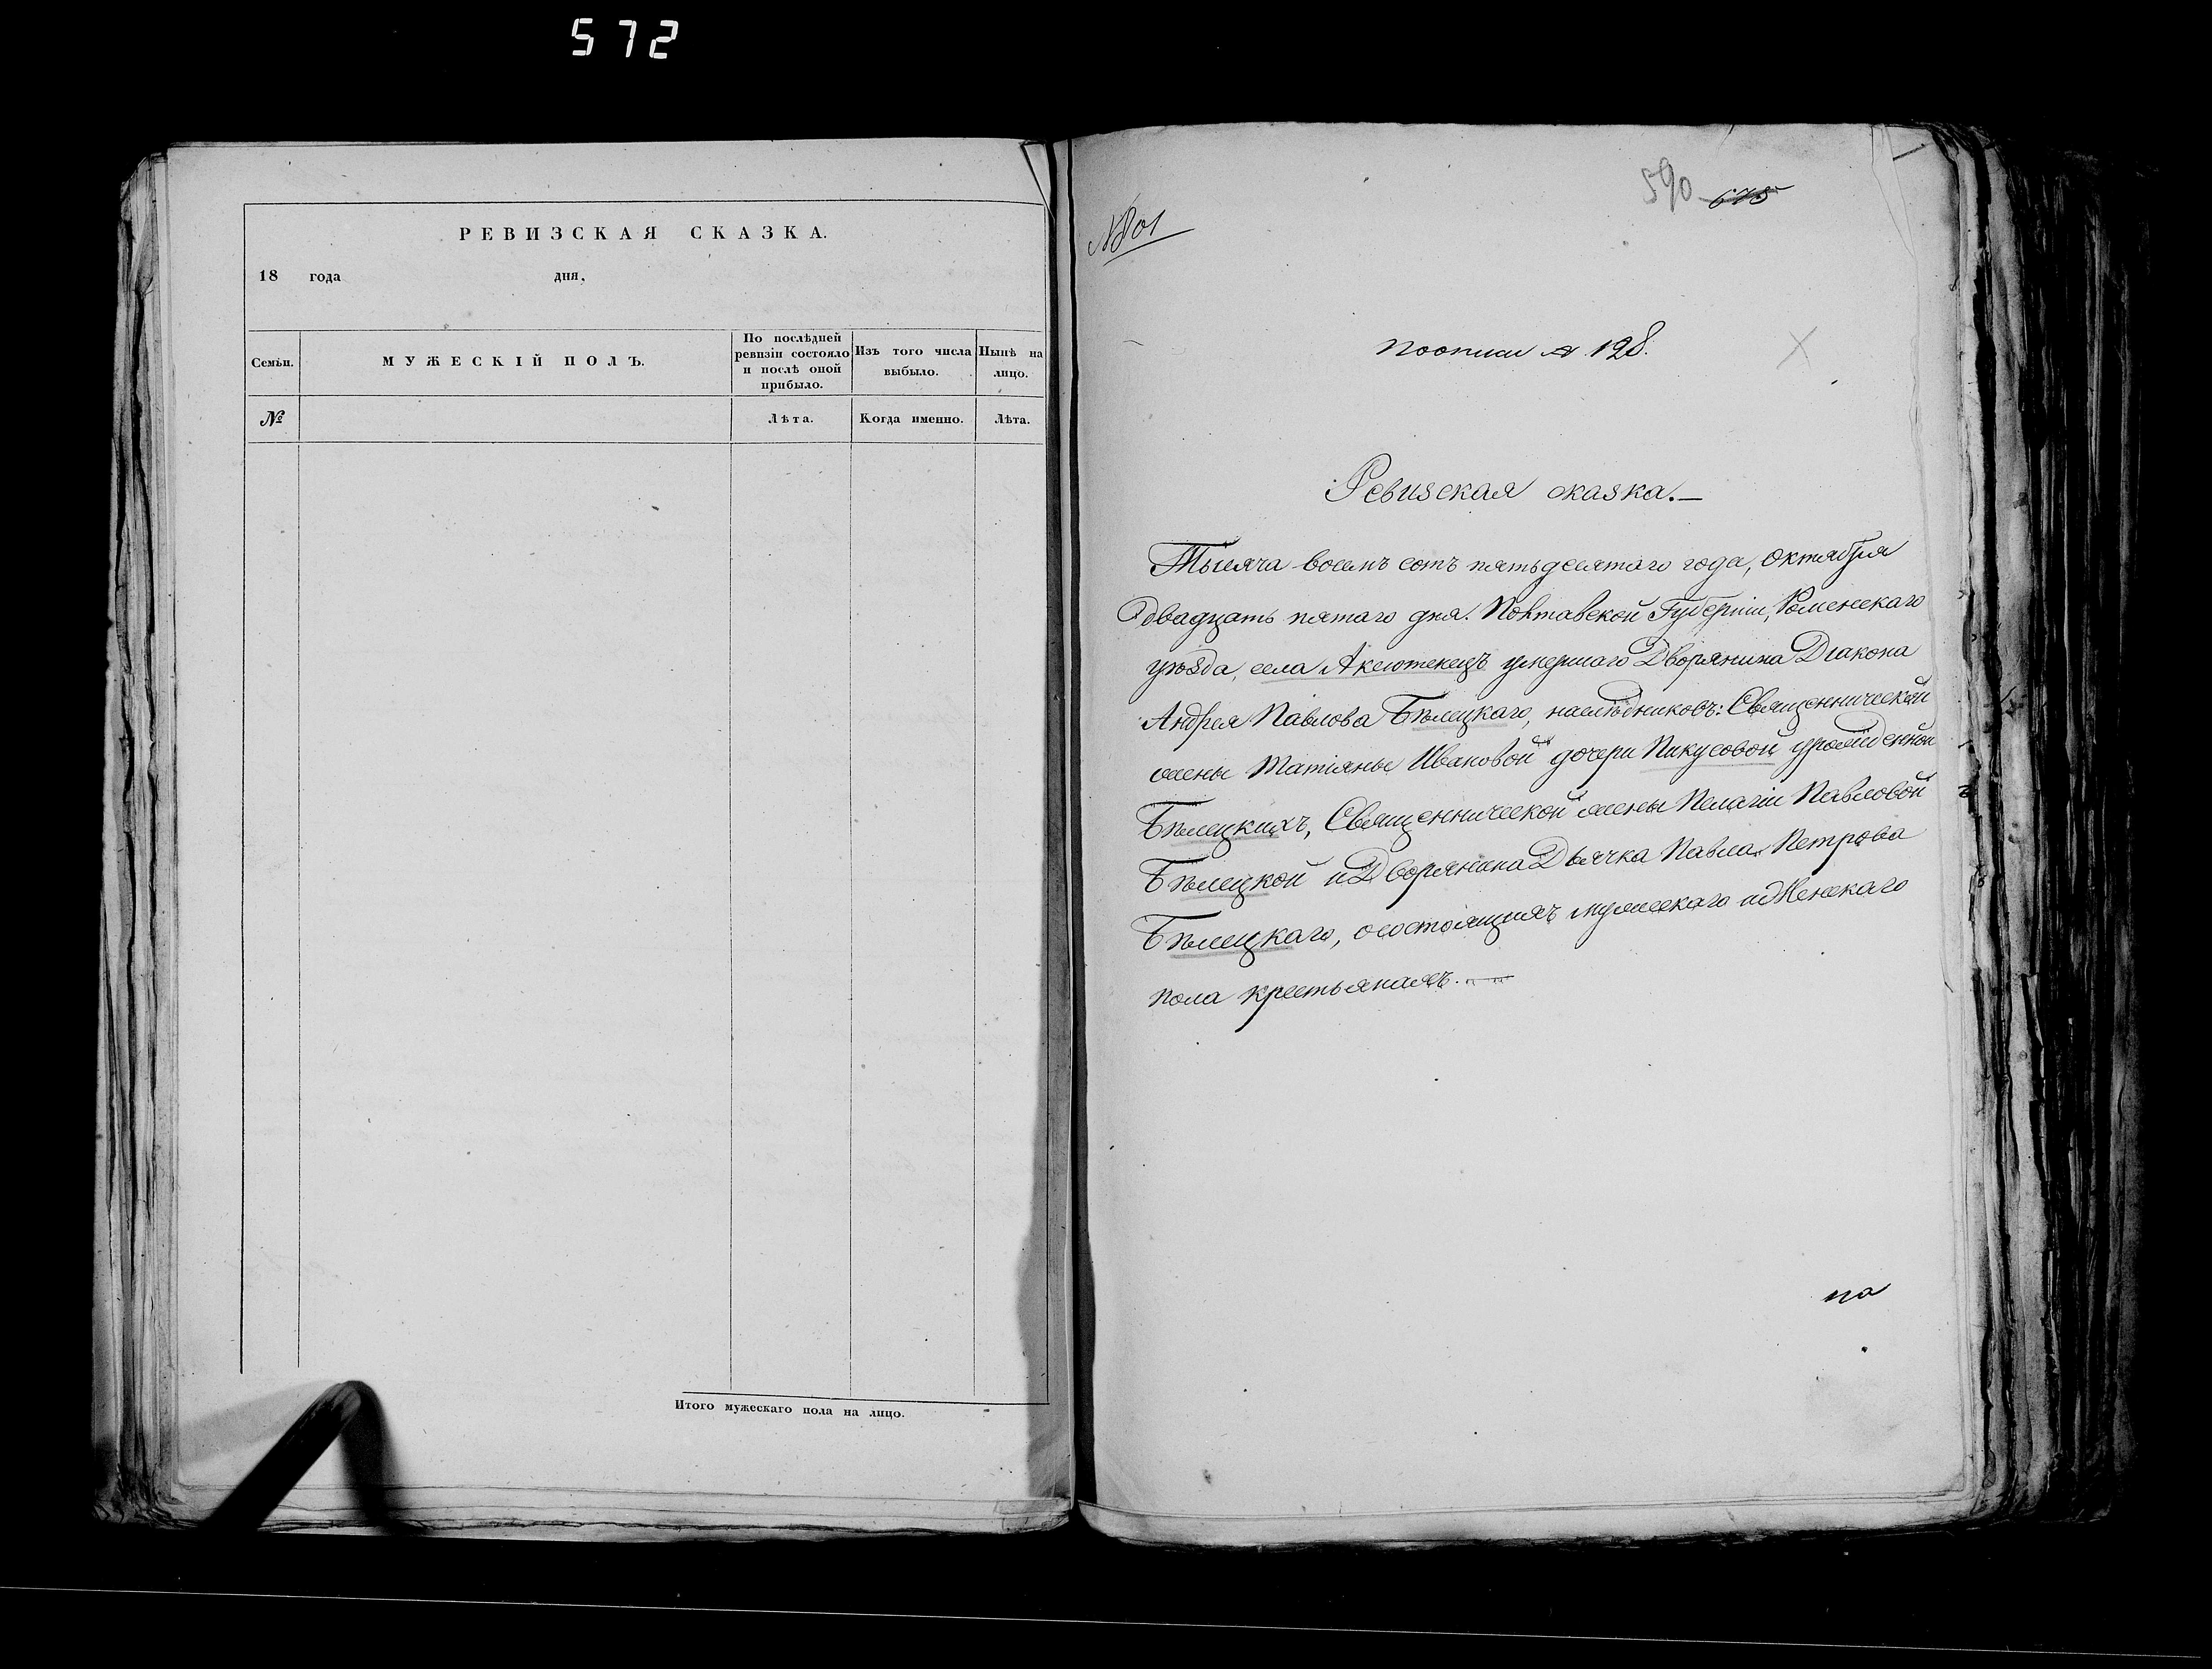 572
РЕВИЗСКАЯ СКАЗКА.
18 года дня,
Семьи.
МУЖЕСКІЙ ПОЛЪ.
По послѣдней ревизіи состояло и послѣ оной прибыло.
Изъ того числа выбыло.
Нынѣ на лицо.
№
Лѣта.
Когда именно.
Лѣта.
Итого мужескаго пола на лицо.
590 675
№801
по описи № 128.
Ревизская сказка.—
Тысяча восемь сотъ пятьдесятаго года, Октября
двадцать пятаго дня. Полтавской Губерніи, Роменскаго
уѣзда, села Аксютенецъ умершаго Дворянина Діакона
Андрея Павлова Бѣлецкаго, наслѣдниковъ: Священнической
жены Татіяны Ивановой дочери Пикусовой урожденной
Бѣлецкихъ, Священнической жены Пелагіи Павловой
Бѣлецкой и Дворянина Дьячка Павла Петрова
Бѣлецкаго, о состоящихъ мужескаго и Женскаго
пола крестьянахъ.
по